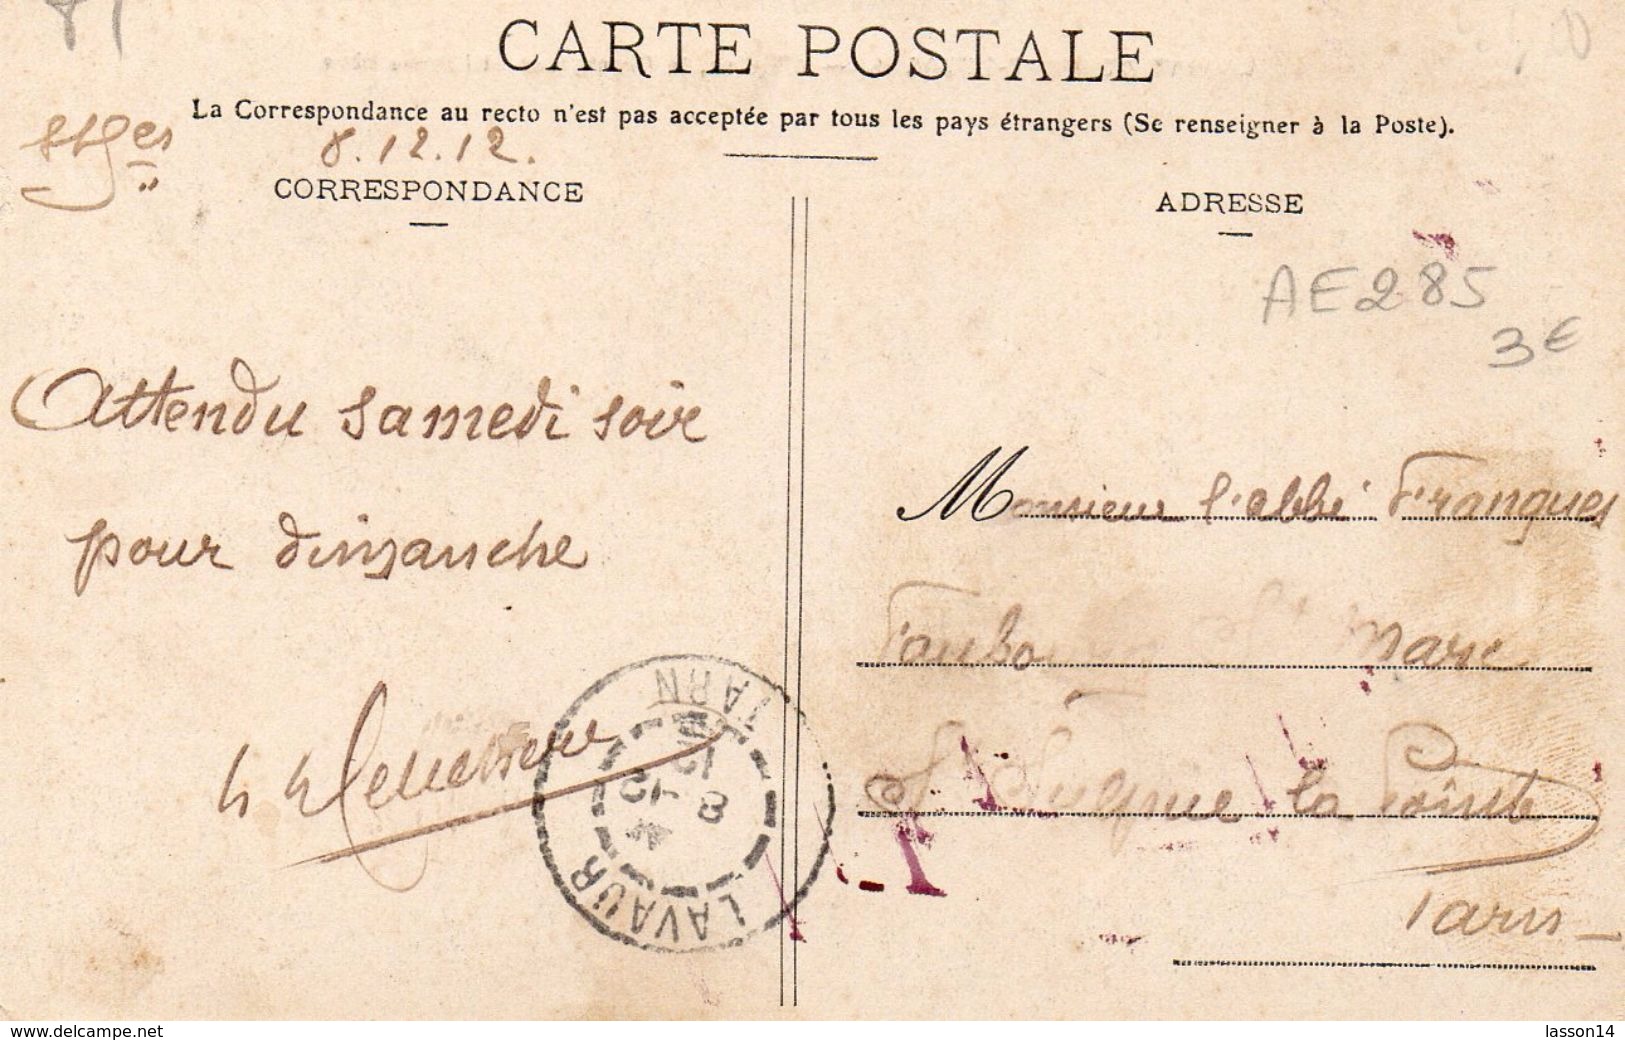 81
CARTE POSTALE
La Correspondance au recto n'est pas acceptée par tous les pays étrangers (Se renseigner à la Poste).
8.12.12.
CORRESPONDANCE
ADRESSE
AE285
3€
Attendu samedi soir
pour dimanche
Monsieur l'abbé Franques
Faubo Marc
St Sulpice la Pointe
Tarn
LAVAUR
TARN
8 -12
12
www.delcampe.net
lasson14